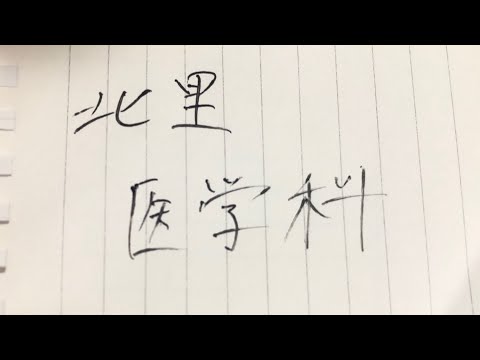 北里
医学科